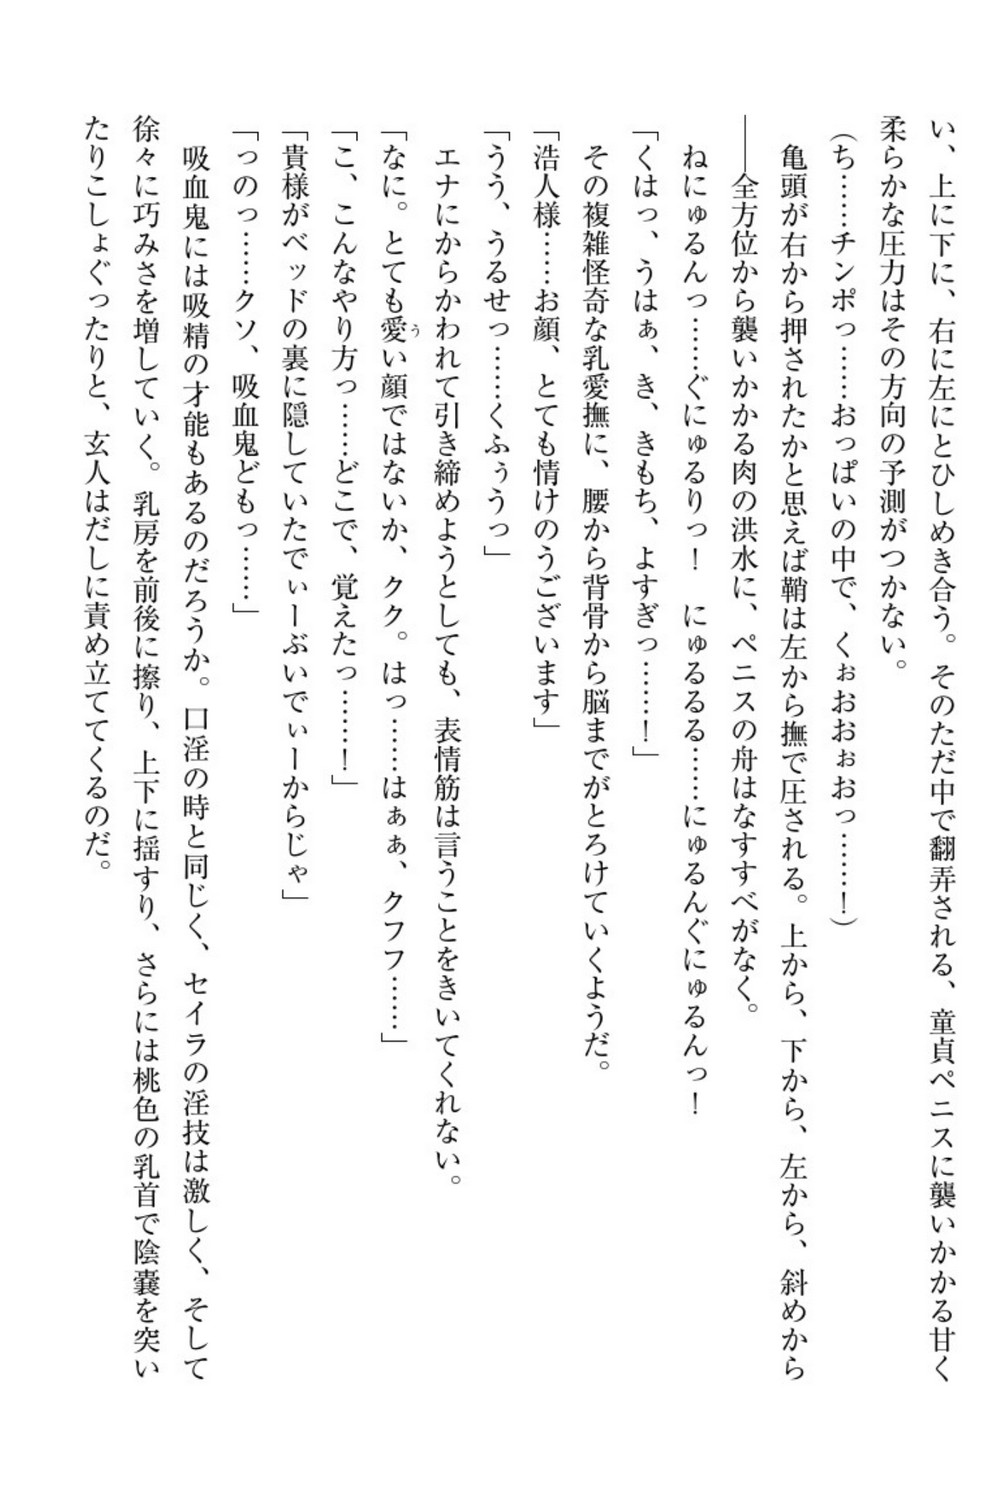 い、上に下に、右に左にとひしめき合う。そのただ中で翻弄される、童貞ペニスに襲いかかる甘く
柔らかな圧力はその方向の予測がつかない。
（ち……チンポっ……おっぱいの中で、くぉおおぉおっ……！）
　亀頭が右から押されたかと思えば鞘は左から撫で圧される。上から、下から、左から、斜めから
――全方位から襲いかかる肉の洪水に、ペニスの舟はなすすべがなく。
　ねにゅるんっ……ぐにゅるりっ！　にゅるるる……にゅるんぐにゅるんっ！
「くはっ、うはぁ、き、きもち、よすぎっ……！」
　その複雑怪奇な乳愛撫に、腰から背骨から脳までがとろけていくようだ。
「浩人様……お顔、とても情けのうございます」
「うう、うるせっ……くふぅうっ」
　エナにからかわれて引き締めようとしても、表情筋は言うことをきいてくれない。
「なに。とても愛（う）い顔ではないか、クク。はっ……はぁぁ、クフフ……」
「こ、こんなやり方っ……どこで、覚えたっ……！」
「貴様がベッドの裏に隠していたでぃーぶいでぃーからじゃ」
「っのっ……クソ、吸血鬼どもっ……」
　吸血鬼には吸精の才能もあるのだろうか。口淫の時と同じく、セイラの淫技は激しく、そして
徐々に巧みさを増していく。乳房を前後に擦り、上下に揺すり、さらには桃色の乳首で陰嚢を突い
たりこしょぐったりと、玄人はだしに責め立ててくるのだ。